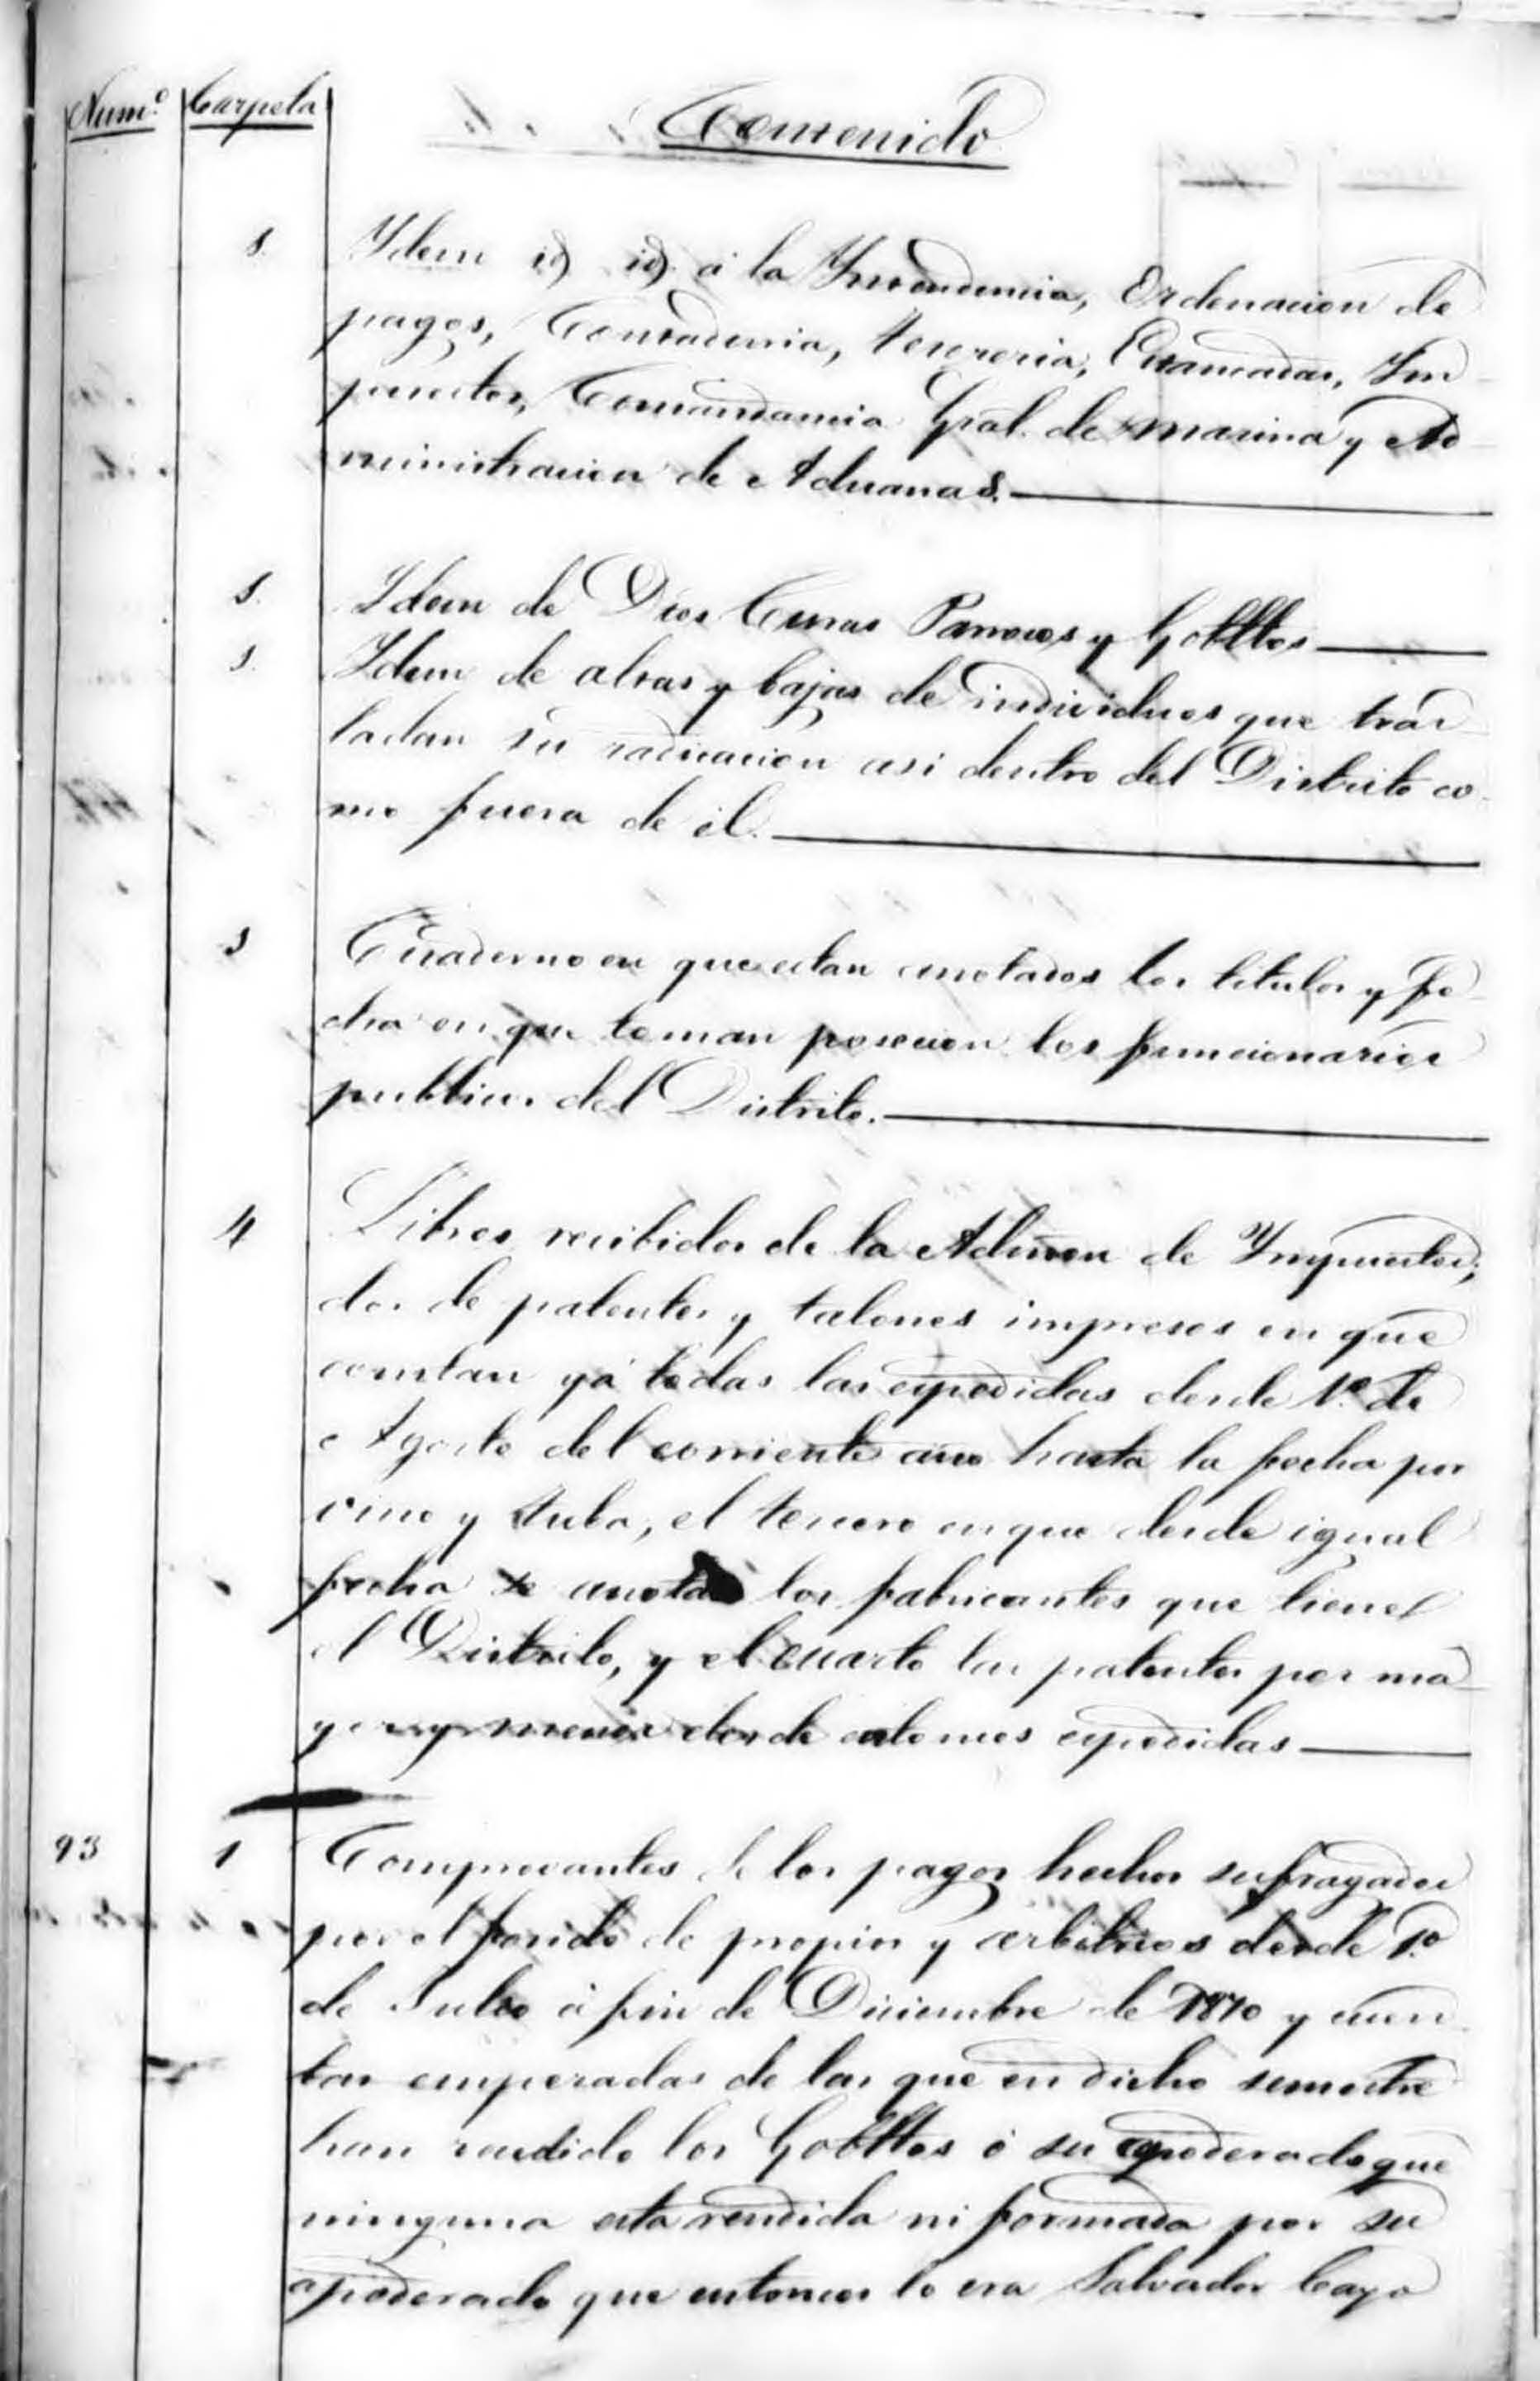 Num.º Carpeta Contenido
s. Ydem id id. á la Yntendencia, Ordenacion de
pagos, Contaduria, tesoreria, Estancadas, Im-
puestos, Comandancia Gral. de marina y Ad-
ministracion de Aduanas.
s. Idem de Dios Curas Parrocos y Gobllos
s. Idem de altas y bajas de individuos que tras-
ladan su radicacion asi dentro del Distrito co-
mo fuera de él.
s Cuaderno en que estan anotados los titulos y fe-
cha en que toman posecion los funcionarios
publicos del Distrito.
4 Libros recibidos de la Admon de Ympuestos;
dos de patentes y talones impresos en que
constan yá todas las espedidas desde 1º de
Agosto del corriente año hasta la fecha por
vino y tuba, el tercero en que desde igual
fecha se anota los fabricantes que tiene
el Distrito, y el cuarto las patentes por ma-
yor y menor desde entonces espedidas
93 1 Comprovantes de los pagos hechos sufragados
por el fondo de propios y arbitrios desde 1.º
de Julio á fin de Diciembre de 1870 y cuen-
tas emperadas de las que en dicho semestre
han rendido los Gobllos ó su apoderado que
ninguna esta rendida ni formada por su
apoderado que entonces lo era Salvador Cayo